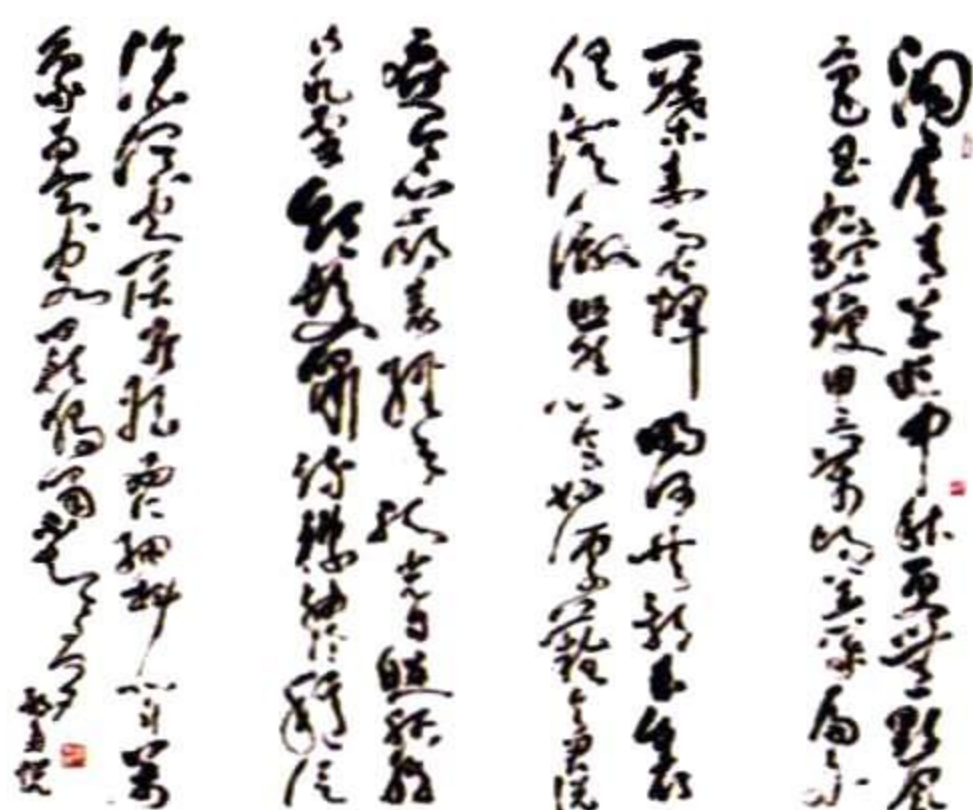 洞庭青草近中秋更無一點風
色玉鑑瓊田三萬頃著我扁舟
一葉素月分輝明河共影表裏
俱澄澈悠然心會妙處難與君說
應念嶺表經年孤光自照肝膽
皆冰雪短髮蕭疏襟袖冷穩泛
滄溟空闊盡挹西江細斟北斗萬
象為賓客叩舷獨嘯不知今夕